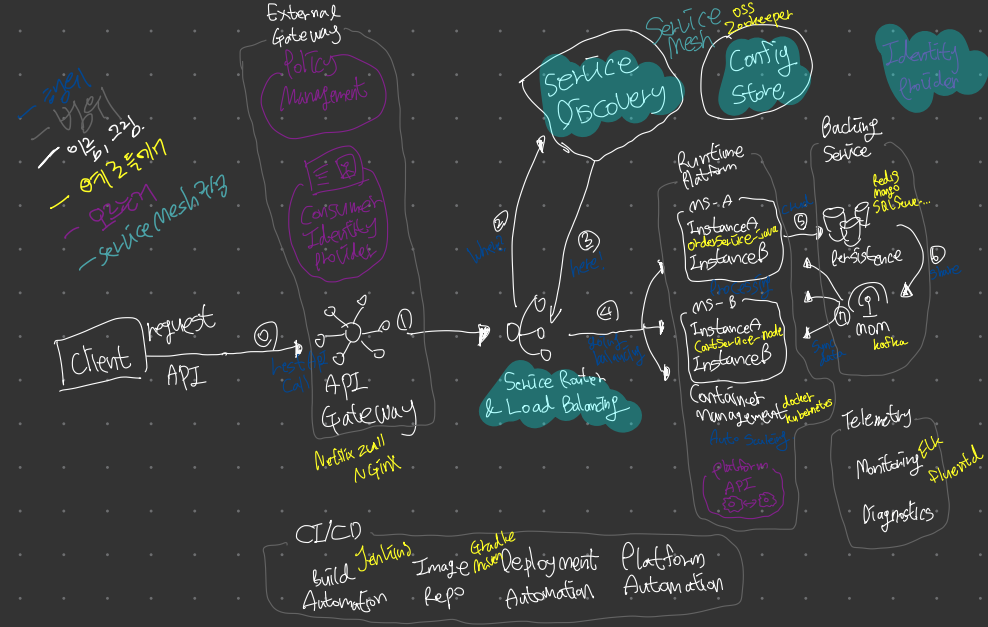 External
Gateway
Policy
Management
Consumer
Identity
provider
이름, 그림.
service Mesh 구성
Client
request
API
⓪
Call
①
API
Gateway
Netflix zuul
NGinX
Service
Discovery
Service
Mesh
OSS
Zookeeper
Config
Store
Identity
Provider
②
where?
③
here!
④
Service Router
& Load Balancing
Runtime
Platform
MS-A
InstanceA
orderService-java
InstanceB
MS-B
InstanceA
CartService-node
InstanceB
Container
management
docker
kubernetes
platform
API
Backing
Service
⑤
Redis
mongo
SQL Server...
Persistence
⑥
⑦
MOM
kafka
Telemetry
Monitoring
ELK
fluentd
Diagnostics
CI/CD
Build
Automation
Jenkins
Image
Repo
Gradle
maven
Deployment
Automation
Platform
Automation